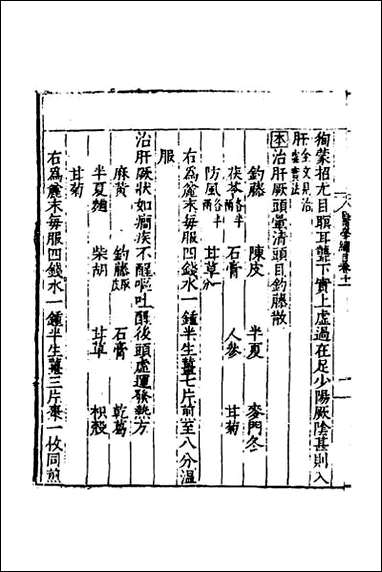 醫學綱目卷十一
徇蒙招尤目瞑耳聾下實上虛過在足少陽厥陰甚則入
肝全文見治肝虛實法
本治肝厥頭暈清頭目釣藤散
釣藤 陳皮 半夏 麥門冬
茯苓各半兩 石膏 人參 甘菊
防風各半兩 甘草一分
右為麄末每服四錢水一鍾半生薑七片煎至八分溫
服
治肝厥狀如癎疾不醒嘔吐醒後頭虛運發熱方
麻黃 釣藤皮 石膏 乾葛
半夏麯 柴胡 甘草 枳殼
甘菊
右為麄末每服四錢水一鍾半生薑三片棗一枚同煎